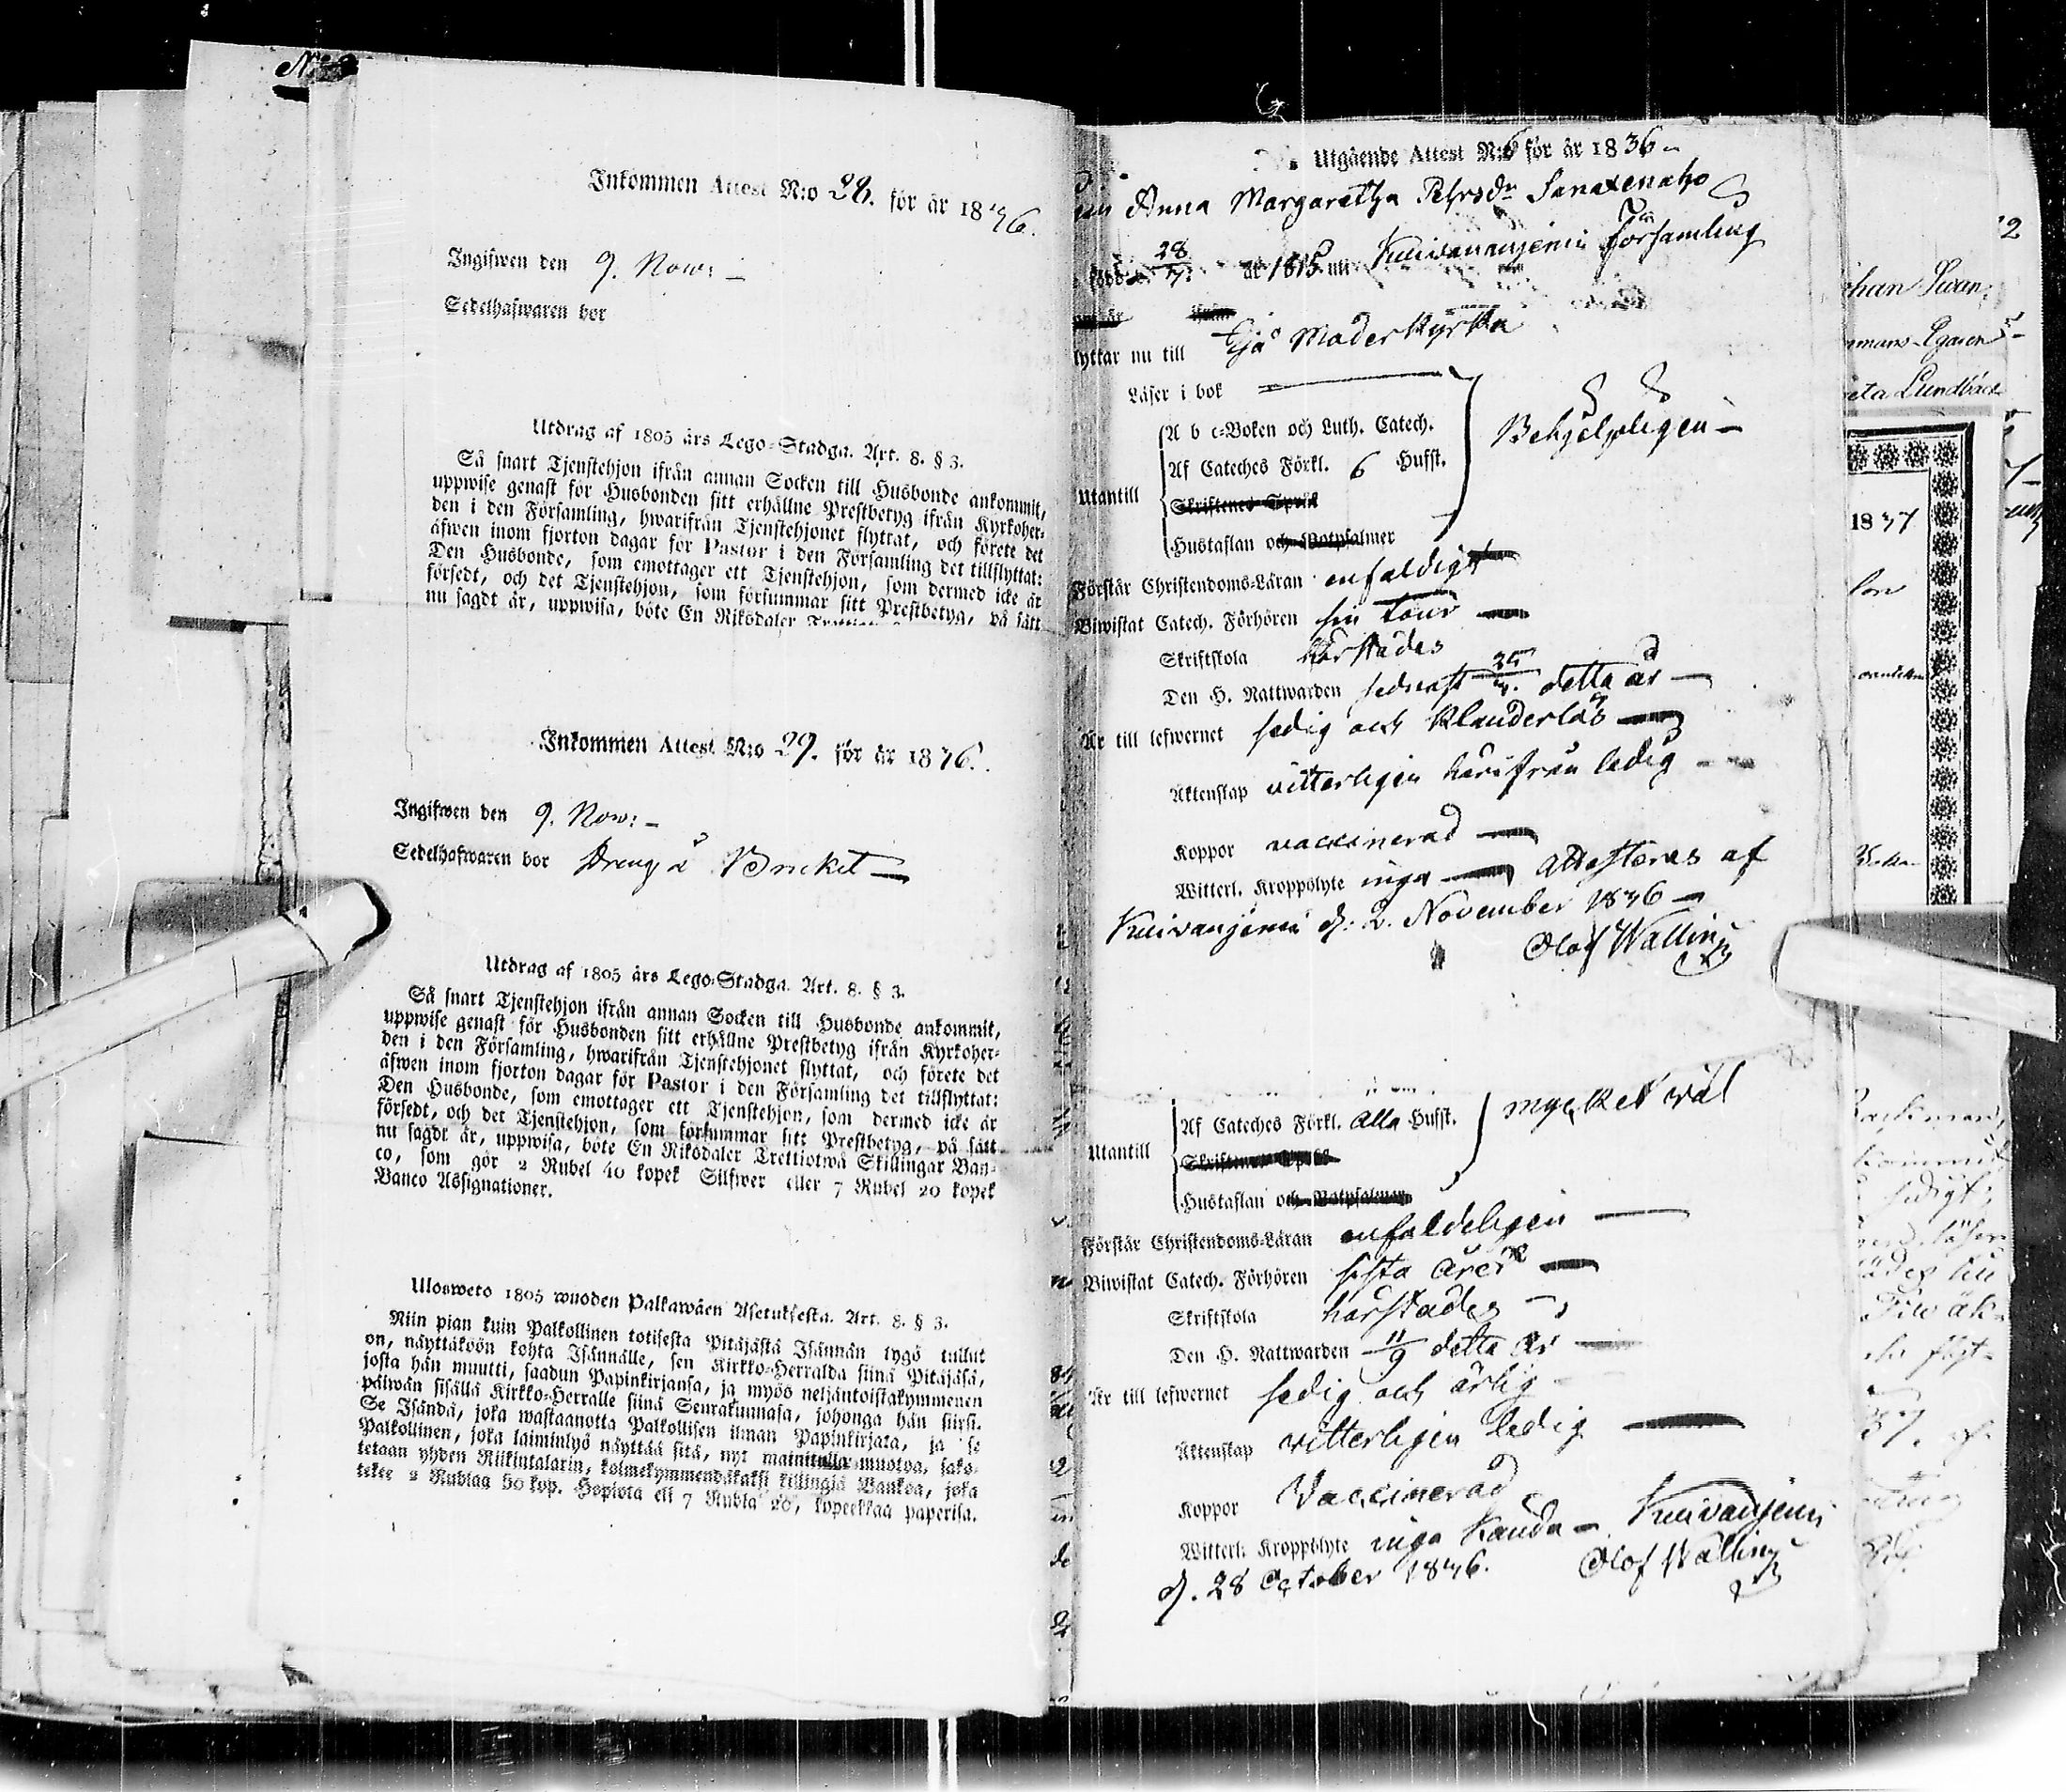 Inkommen Attest N:o 28. för år 1836.
Ingifwen den 9. Nov: –
Sedelhafwaren bor
Utdrag af 1805 års Lego-Stadga. Art. 8. § 3.
Så snart Tjenstehjon ifrån annan Socken till Husbonde ankommit,
uppwise genast för Husbonden sitt erhållne Prestbetyg ifrån Kyrkoher-
den i den Församling, hwarifrån Tjenstehjonet flyttat, och förete det
äfwen inom fjorton dagar för Pastor i den Församling det tillflyttat:
Den Husbonde, som emottager ett Tjenstehjon, som dermed icke är
försedt, och det Tjenstehjon, som försummar sitt Prestbetyg, på sätt
nu sagdt är, uppwisa, böte En Riksdaler
Inkommen Attest N:o 29. för år 1836.
Ingifwen den 9. Nov: –
Sedelhafwaren bor Dreng å Bruket –
Utdrag af 1805 års Lego-Stadga. Art. 8. § 3.
Så snart Tjenstehjon ifrån annan Socken till Husbonde ankommit,
uppwise genast för Husbonden sitt erhållne Prestbetyg ifrån Kyrkoher-
den i den Församling, hwarifrån Tjenstehjonet flyttat, och förete det
äfwen inom fjorton dagar för Pastor i den Församling det tillflyttat:
Den Husbonde, som emottager ett Tjenstehjon, som dermed icke är
försedt, och det Tjenstehjon, som försummar sitt Prestbetyg, på sätt
nu sagdt är, uppwisa, böte En Riksdaler Trettiotwå Skillingar Ban-
co, som gör 2 Rubel 40 kopek Silfwer eller 7 Rubel 20 kopek
Banco Assignationer.
Ulosweto 1805 wuoden Palkawäen Asetuksesta. Art. 8. § 3.
Niin pian kuin Palkollinen totisesta Pitäjästä Isännän tygö tullut
on, näyttäköön kohta Isännälle, sen Kirkko-Herralda siinä Pitäjäsä,
josta hän muutti, saadun Papinkirjansa, ja myös neljäntoistakymmenen
päiwän sisällä Kirkko-Herralle siinä Seurakunnasa, johonga hän siirsi.
Se Isändä, joka wastaanotta Palkollisen ilman Papinkirjata, ja se
Palkollinen, joka laiminlyö näyttää sitä, nyt mainitulla muotoa, sako-
tetaan yhden Riikintalarin, kolmekymmendäkaksi killingiä Bankoa, joka
tekee 2 Rublaa 50 kop. Hopiota eli 7 Rubla 20, kopeekkaa paperisa.
Utgående Attest N:6 för år 1836
Anna Margaretha Pehrsdr Sanaxenaho
född 28/7. år 1815 uti Kuivanjemi Församling
lyttar nu till Ijo Moderkyrka
Läser i bok
Utantill
A b c-Boken och Luth. Catech.
Af Cateches Förkl. 6 Hufst.
Skriftenes Språk
Hustaflan och Botpsalmer
Behjelpligen –
Förstår Christendoms-Läran enfaldigt
Biwistat Catech. Förhören sin tour
Skriftskola härstädes
Den H. Nattwarden sednast detta år –
Är till lefwernet sedig och klanderlös
Äktenskap vitterligen härifrån ledig –
Koppor vaccinerad –
Witterl. Kroppslyte inga – Attesteras af
Kuivanjemi d. 2. November 1836 –
Olof Wallin
Utantill
Af Cateches Förkl. alla Hufst.
Skriftenes Språk
Hustaflan och Botpsalmer
mycket väl
Förstår Christendoms-Läran enfaldeligen –
Biwistat Catech. Förhören sista året –
Skriftskola härstädes –
Den H. Nattwarden 11/9 detta år –
Är till lefwernet sedig och ärlig
Äktenskap vitterligen ledig –
Koppor Vaccinerad
Witterl: Kroppslyte inga kända – Kuivanjemi
d. 28 October 1836. Olof Wallin
1837